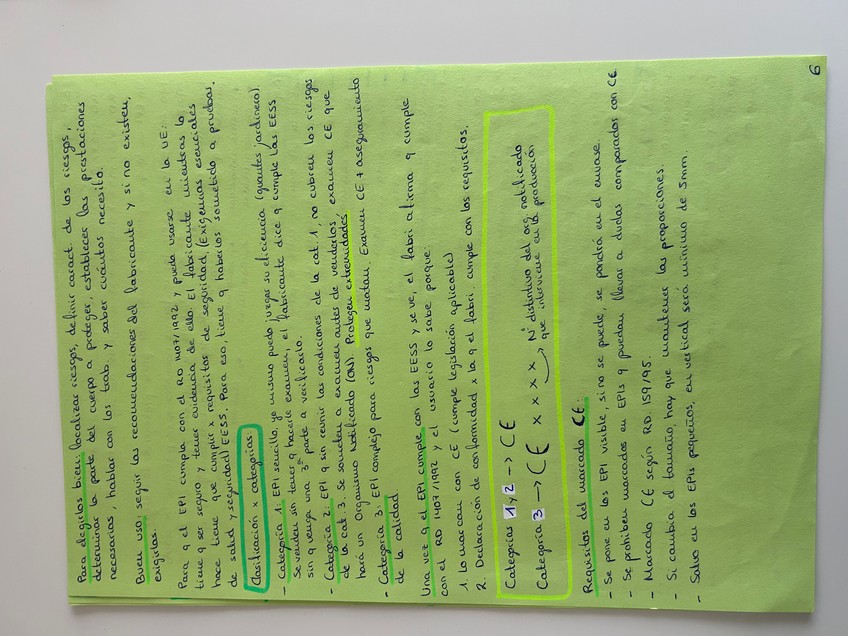 Para elegirlos bien: localizar riesgos, definir caract. de los riesgos,
determinar la parte del cuerpo a proteger, establecer las prestaciones
necesarias, hablar con los trab. y saber cuántos necesito.
Buen uso: seguir las recomendaciones del fabricante y si no existen,
exigirlas.
Para q el EPI cumpla con el RD 1407/1992 y pueda usarse en la UE:
tiene q ser seguro y tener evidencia de ello. El fabricante mientras lo
hace tiene que cumplir x requisitos de seguridad, (Exigencias esenciales
de salud y seguridad) EESS. Para eso, tiene q haberlos sometido a pruebas.
Clasificación x categorías:
- Categoría 1: EPI sencillo, yo mismo puedo juzgar su eficiencia (guantes jardinero).
Se venden sin tener q hacerle examen, el fabricante dice q cumple las EESS
sin q venga una 3ª parte a verificarlo.
- Categoría 2: EPI q sin reunir las condiciones de la cat. 1, no cubren los riesgos
de la cat. 3. Se someten a examen antes de venderlos, examen CE que
hará un Organismo Notificado (ON). Protegen extremidades
- Categoría 3: EPI complejo para riesgos que matan. Examen CE + aseguramiento
de la calidad
Una vez q el EPI cumple con las EESS y se ve, el fabri afirma q cumple
con el RD 1407/1992 y el usuario lo sabe porque:
1. Lo marcan con CE (cumple legislación aplicable)
2. Declaración de conformidad x la q el fabri. cumple con los requisitos.
Categorías 1 y 2 → CE
Categoría 3 → CE X X X X → Nº distintivo del org. notificado
que interviene en la producción
Requisitos del marcado CE:
- Se pone en los EPI visible, si no se puede, se pondrá en el envase.
- Se prohíben marcados en EPIs q puedan llevar a dudas comparados con CE
- Marcado CE según RD. 159/95.
- Si cambia el tamaño, hay que mantener las proporciones.
- Salvo en los EPIs pequeños, en vertical será mínimo de 5mm.
6